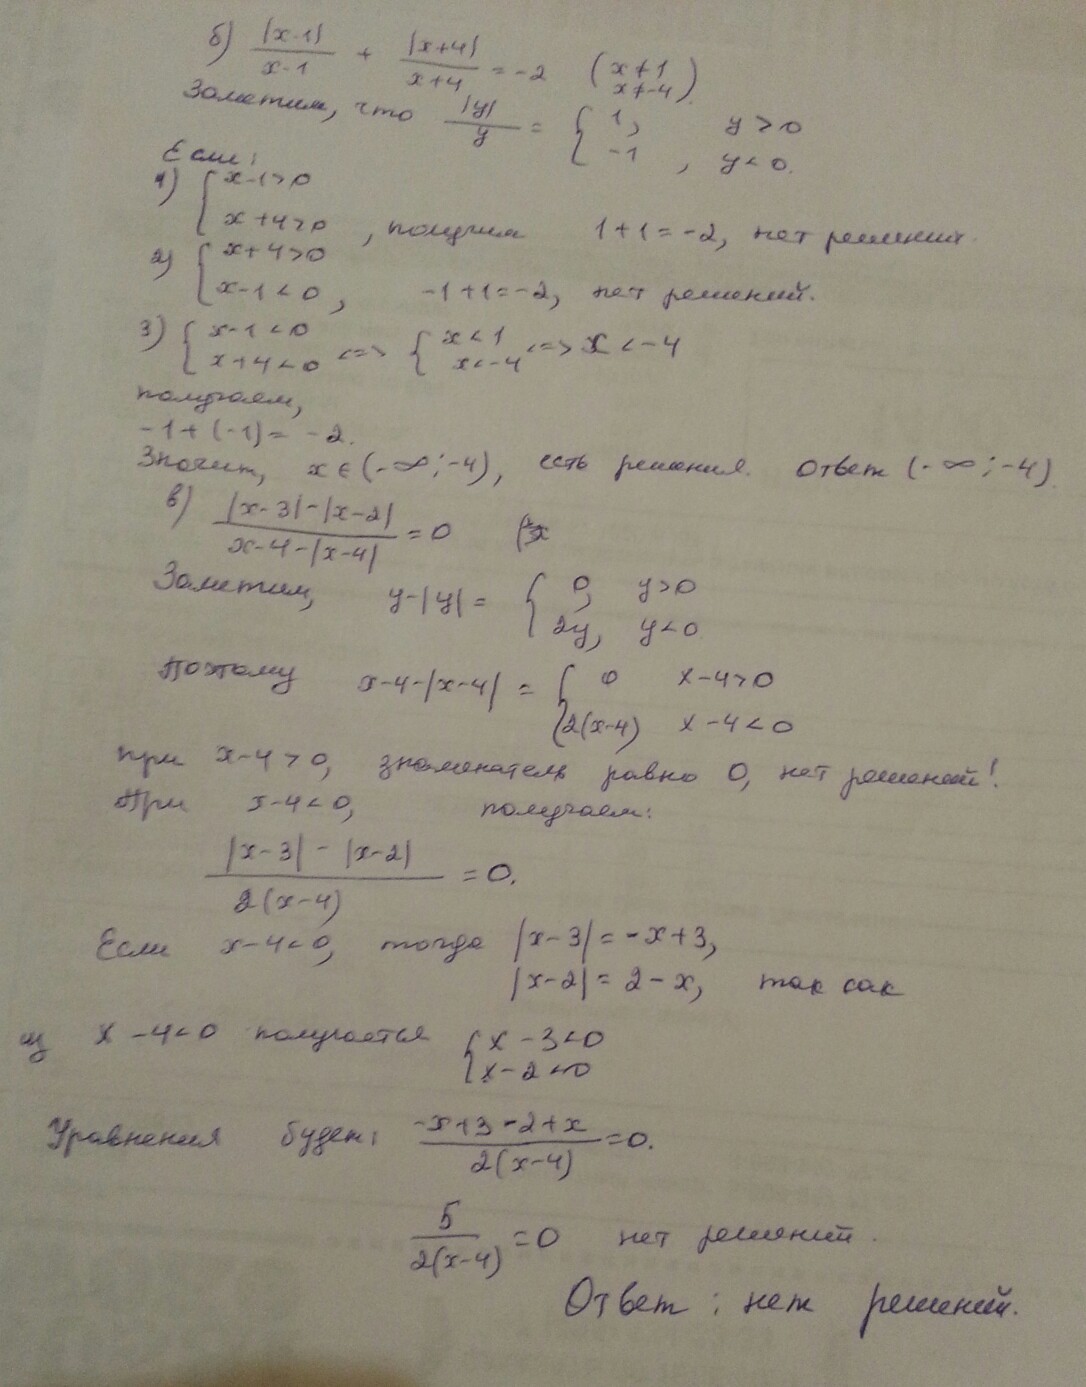 б) |x-1|/(x-1) + |x+4|/(x+4) = -2 (x≠1 x≠-4)
Заметим, что |y|/y = { 1, y>0
-1, y<0.
Если:
1) { x-1>0
x+4>0, получим 1+1=-2, нет решений.
2) { x+4>0
x-1<0, -1+1=-2, нет решений.
3) { x-1<0 x+4<0 <=> { x<1 x<-4 <=> x<-4
получаем,
-1+(-1)= -2.
Значит, x∈(-∞;-4), есть решения. Ответ (-∞;-4).
в) (|x-3|-|x-2|)/(x-4-|x-4|) = 0
Заметим, y-|y| = { 0, y>0
2y, y<0.
Поэтому x-4-|x-4| = { 0 x-4>0
2(x-4) x-4<0
при x-4>0, знаменатель равно 0, нет решений!
При x-4<0, получаем:
(|x-3| - |x-2|)/(2(x-4)) = 0.
Если x-4<0, тогда |x-3|=-x+3,
|x-2|= 2-x, так как
из x-4<0 получается { x-3<0
x-2<0
Уравнения будет: (-x+3-2+x)/(2(x-4)) = 0.
5/(2(x-4)) = 0 нет решений.
Ответ: нет решений.